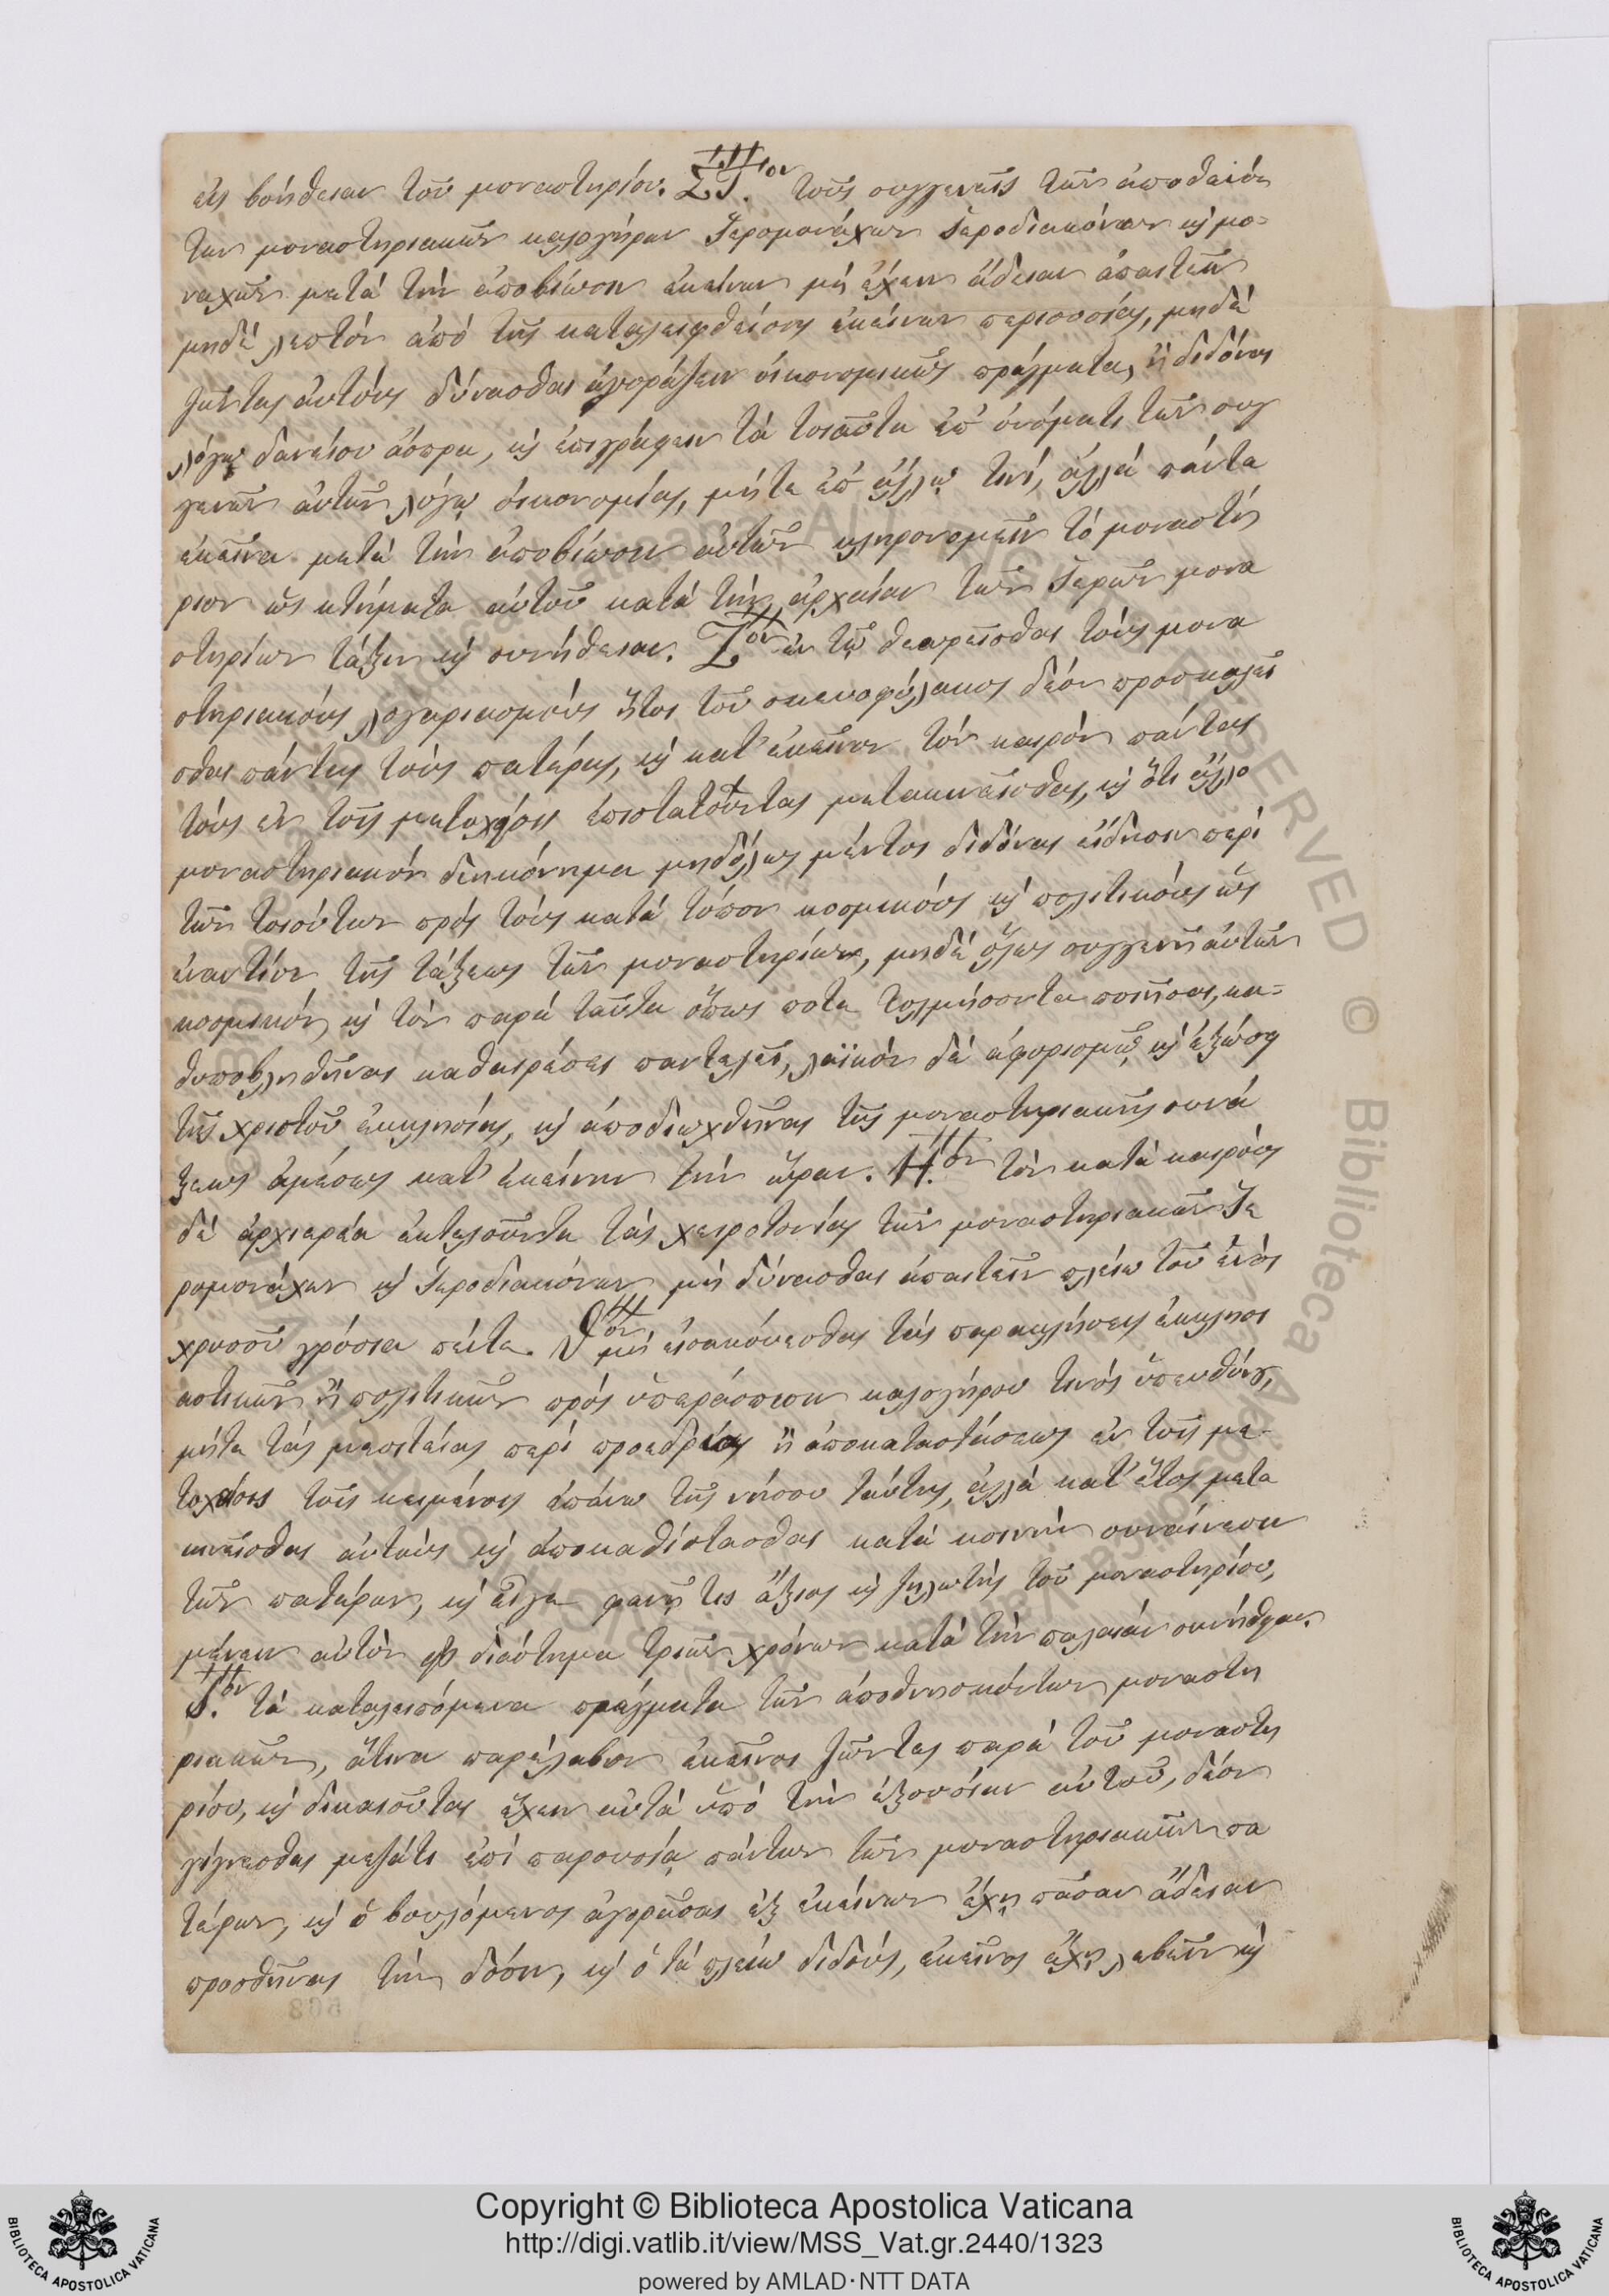 εἰς βοήθειαν τοῦ μοναστηρίου. ΣΤ.ον τοὺς συγγενεῖς τῶν ἀποθαιόν
των μοναστηριακῶν καλογήρων Ἱερομονάχων Ἱεροδιακόνων κὶ μο-
ναχῶν μετὰ τὴν ἀποβίωσιν ἐκείνων μὴ ἔχειν ἄδειαν ἀπαιτεῖν
μηδὲ λεπτὸν ἀπὸ τῆς καταλειφθείσης ἐκείνων περιουσίας, μηδὲ
ζῶντας αὐτοὺς δύνασθαι ἀγοράζειν οἰκονομικῶς πράγματα, ἢ διδόναι
λόγῳ δανείου ἄσπρα, κὶ ἐπιγράφειν τὰ τοιαῦτα ἐπ' ὀνόματι τῶν συγ
γενῶν αὐτῶν λόγῳ οἰκονομίας, μήτε ἐπ' ἄλλῳ τινί, ἀλλὰ πάντα
ἐκεῖνα μετὰ τὴν ἀποβίωσιν αὐτῶν κληρονομεῖν τὸ μοναστή
ριον ὡς κτήματα αὐτοῦ κατὰ τὴν ἀρχαίαν τῶν Ἱερῶν μονα
στηρίων τάξιν κὶ συνήθειαν. Ζον ἐν τῷ θεωρεῖσθαι τοὺς μονα
στηριακοὺς λογαριασμοὺς ἤτοι τοῦ σκευοφύλακος δέον προσκαλεῖ
σθαι πάντας τοὺς πατέρας, κὶ κατ' ἐκεῖνον τὸν καιρὸν πάντας
τοὺς ἐν τοῖς μετοχίοις ἐπιστατοῦντας μετακινεῖσθαι, κὶ ὅτι ἄλλο
μοναστηριακὸν διακόνημα μηδόλως μέντοι διδόναι εἴδησιν περὶ
τῶν τοιούτων πρὸς τοὺς κατὰ τόπον κοσμικοὺς κὶ πολιτικοὺς ὡς
ἐναντίον τῆς τάξεως τῶν μοναστηρίων, μηδὲ ὅλως συγγενῆ αὐτῶν
κοσμικόν, κὶ τὸν παρὰ ταῦτα ὅπως ποτε τολμήσοντα ποιῆσαι, κα-
θυποβληθῆναι καθαιρέσει παντελεῖ, λαϊκὸν δὲ ἀφορισμῷ κὶ ἐξώσῃ
τῆς χριστοῦ ἐκκλησίας, κὶ ἀποδιωχθῆναι τῆς μοναστηριακῆς συνά
ξεως ἀμέσως κατ' ἐκείνην τὴν ὥραν. Η.ον τὸν κατὰ καιροὺς
δὲ ἀρχιερέα ἐκτελοῦντα τὰς χειροτονίας τῶν μοναστηριακῶν Ἱε
ρομονάχων κὶ Ἱεροδιακόνων μὴ δύνασθαι ἀπαιτεῖν πλείω τοῦ ἑνὸς
χρυσοῦ γρόσια πέντε. θον μὴ εἰσακούεσθαι τὰς παρακλήσεις ἐκκλησι
αστικῶν ἢ πολιτικῶν πρὸς ὑπεράσπισιν καλογήρου τινὸς ὑπευθύνου,
μήτε τὰς μεσιτείας περὶ προεδρίας ἢ ἀποκαταστάσεως ἐν τοῖς με-
τοχίοις τοῖς κειμένοις ἐπάνω τῆς νήσου ταύτης, ἀλλὰ κατ' ἔτος μετα
κινεῖσθαι αὐτοὺς κὶ ἀποκαθίστασθαι κατὰ κοινὴν συναίνεσιν
τῶν πατέρων, κὶ εἴγε φανῇ τις ἄξιος κὶ ζηλωτὴς τοῦ μοναστηρίου,
μένειν αὐτὸν διάστημα τριῶν χρόνων κατὰ τὴν παλαιὰν συνήθειαν.
Ι.ον τὰ καταλειπόμενα πράγματα τῶν ἀποθνησκόντων μοναστη
ριακῶν, ἅτινα παρέλαβον ἐκεῖνοι ζῶντες παρὰ τοῦ μοναστη
ρίου, κὶ δικαιοῦται ἔχειν αὐτὰ ὑπὸ τὴν ἐξουσίαν αὐτοῦ, δέον
γίγνεσθαι μεζάτι ἐπὶ παρουσίᾳ πάντων τῶν μοναστηριακῶν πα
τέρων, κὶ ὁ βουλόμενος ἀγορᾶσαι ἐξ ἐκείνων ἔχῃ πᾶσαν ἄδειαν
προσθῆναι τὴν δόσιν, κὶ ὁ τὰ πλείω διδούς, ἐκεῖνος ἔχῃ λαβεῖν κὶ
Copyright © Biblioteca Apostolica Vaticana
http://digi.vatlib.it/view/MSS_Vat.gr.2440/1323
powered by AMLAD·NTT DATA